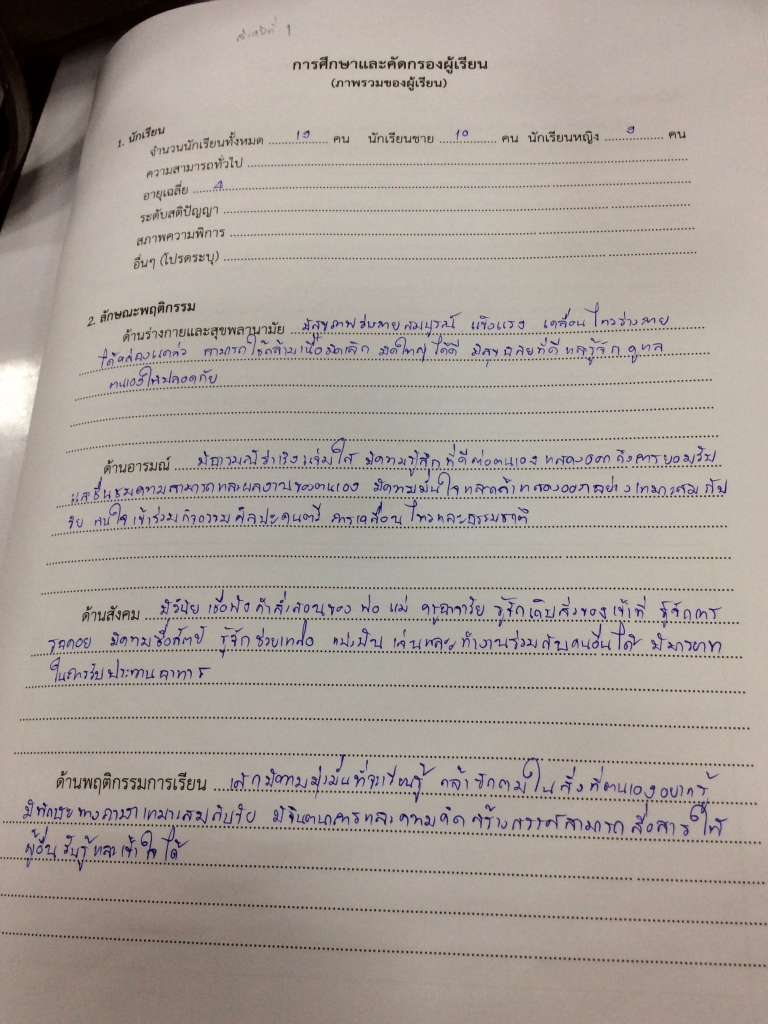 การศึกษาและคัดกรองผู้เรียน
(ภาพรวมของผู้เรียน)
1. นักเรียน
จำนวนนักเรียนทั้งหมด 19 คน นักเรียนชาย 10 คน นักเรียนหญิง 9 คน
ความสามารถทั่วไป
อายุเฉลี่ย 4
ระดับสติปัญญา
สภาพความพิการ
อื่นๆ (โปรดระบุ)
2. ลักษณะพฤติกรรม
ด้านร่างกายและสุขพลานามัย มีสุขภาพร่างกายสมบูรณ์ แข็งแรง เคลื่อนไหวร่างกาย
ได้คล่องแคล่ว สามารถใช้กล้ามเนื้อมัดเล็ก มัดใหญ่ได้ดี มีสุขนิสัยที่ดีและรู้จักดูแล
ตนเองให้ปลอดภัย
ด้านอารมณ์ มีอารมณ์ร่าเริงแจ่มใส มีความรู้สึกที่ดีต่อตนเอง แสดงออกถึงการยอมรับ
และชื่นชมความสามารถและผลงานของตนเอง มีความมั่นใจและกล้าแสดงออกอย่างเหมาะสมกับ
วัย สนใจเข้าร่วมกิจกรรมศิลปะดนตรี การเคลื่อนไหวและธรรมชาติ
ด้านสังคม มีวินัย เชื่อฟังคำสั่งสอนของ พ่อ แม่ ครูอาจารย์ รู้จักเก็บสิ่งของเข้าที่ รู้จักการ
รอคอย มีความซื่อสัตย์ รู้จักช่วยเหลือ แบ่งปัน เล่นและทำงานร่วมกับคนอื่นได้ มีมารยาท
ในการรับประทานอาหาร
ด้านพฤติกรรมการเรียน เด็กมีความมุ่งมั่นที่จะเรียนรู้ กล้าซักถามในสิ่งที่ตนเองอยากรู้
มีทักษะทางภาษาเหมาะสมกับวัย มีจินตนาการและความคิดสร้างสรรค์สามารถสื่อสารให้
ผู้อื่นรับรู้และเข้าใจได้